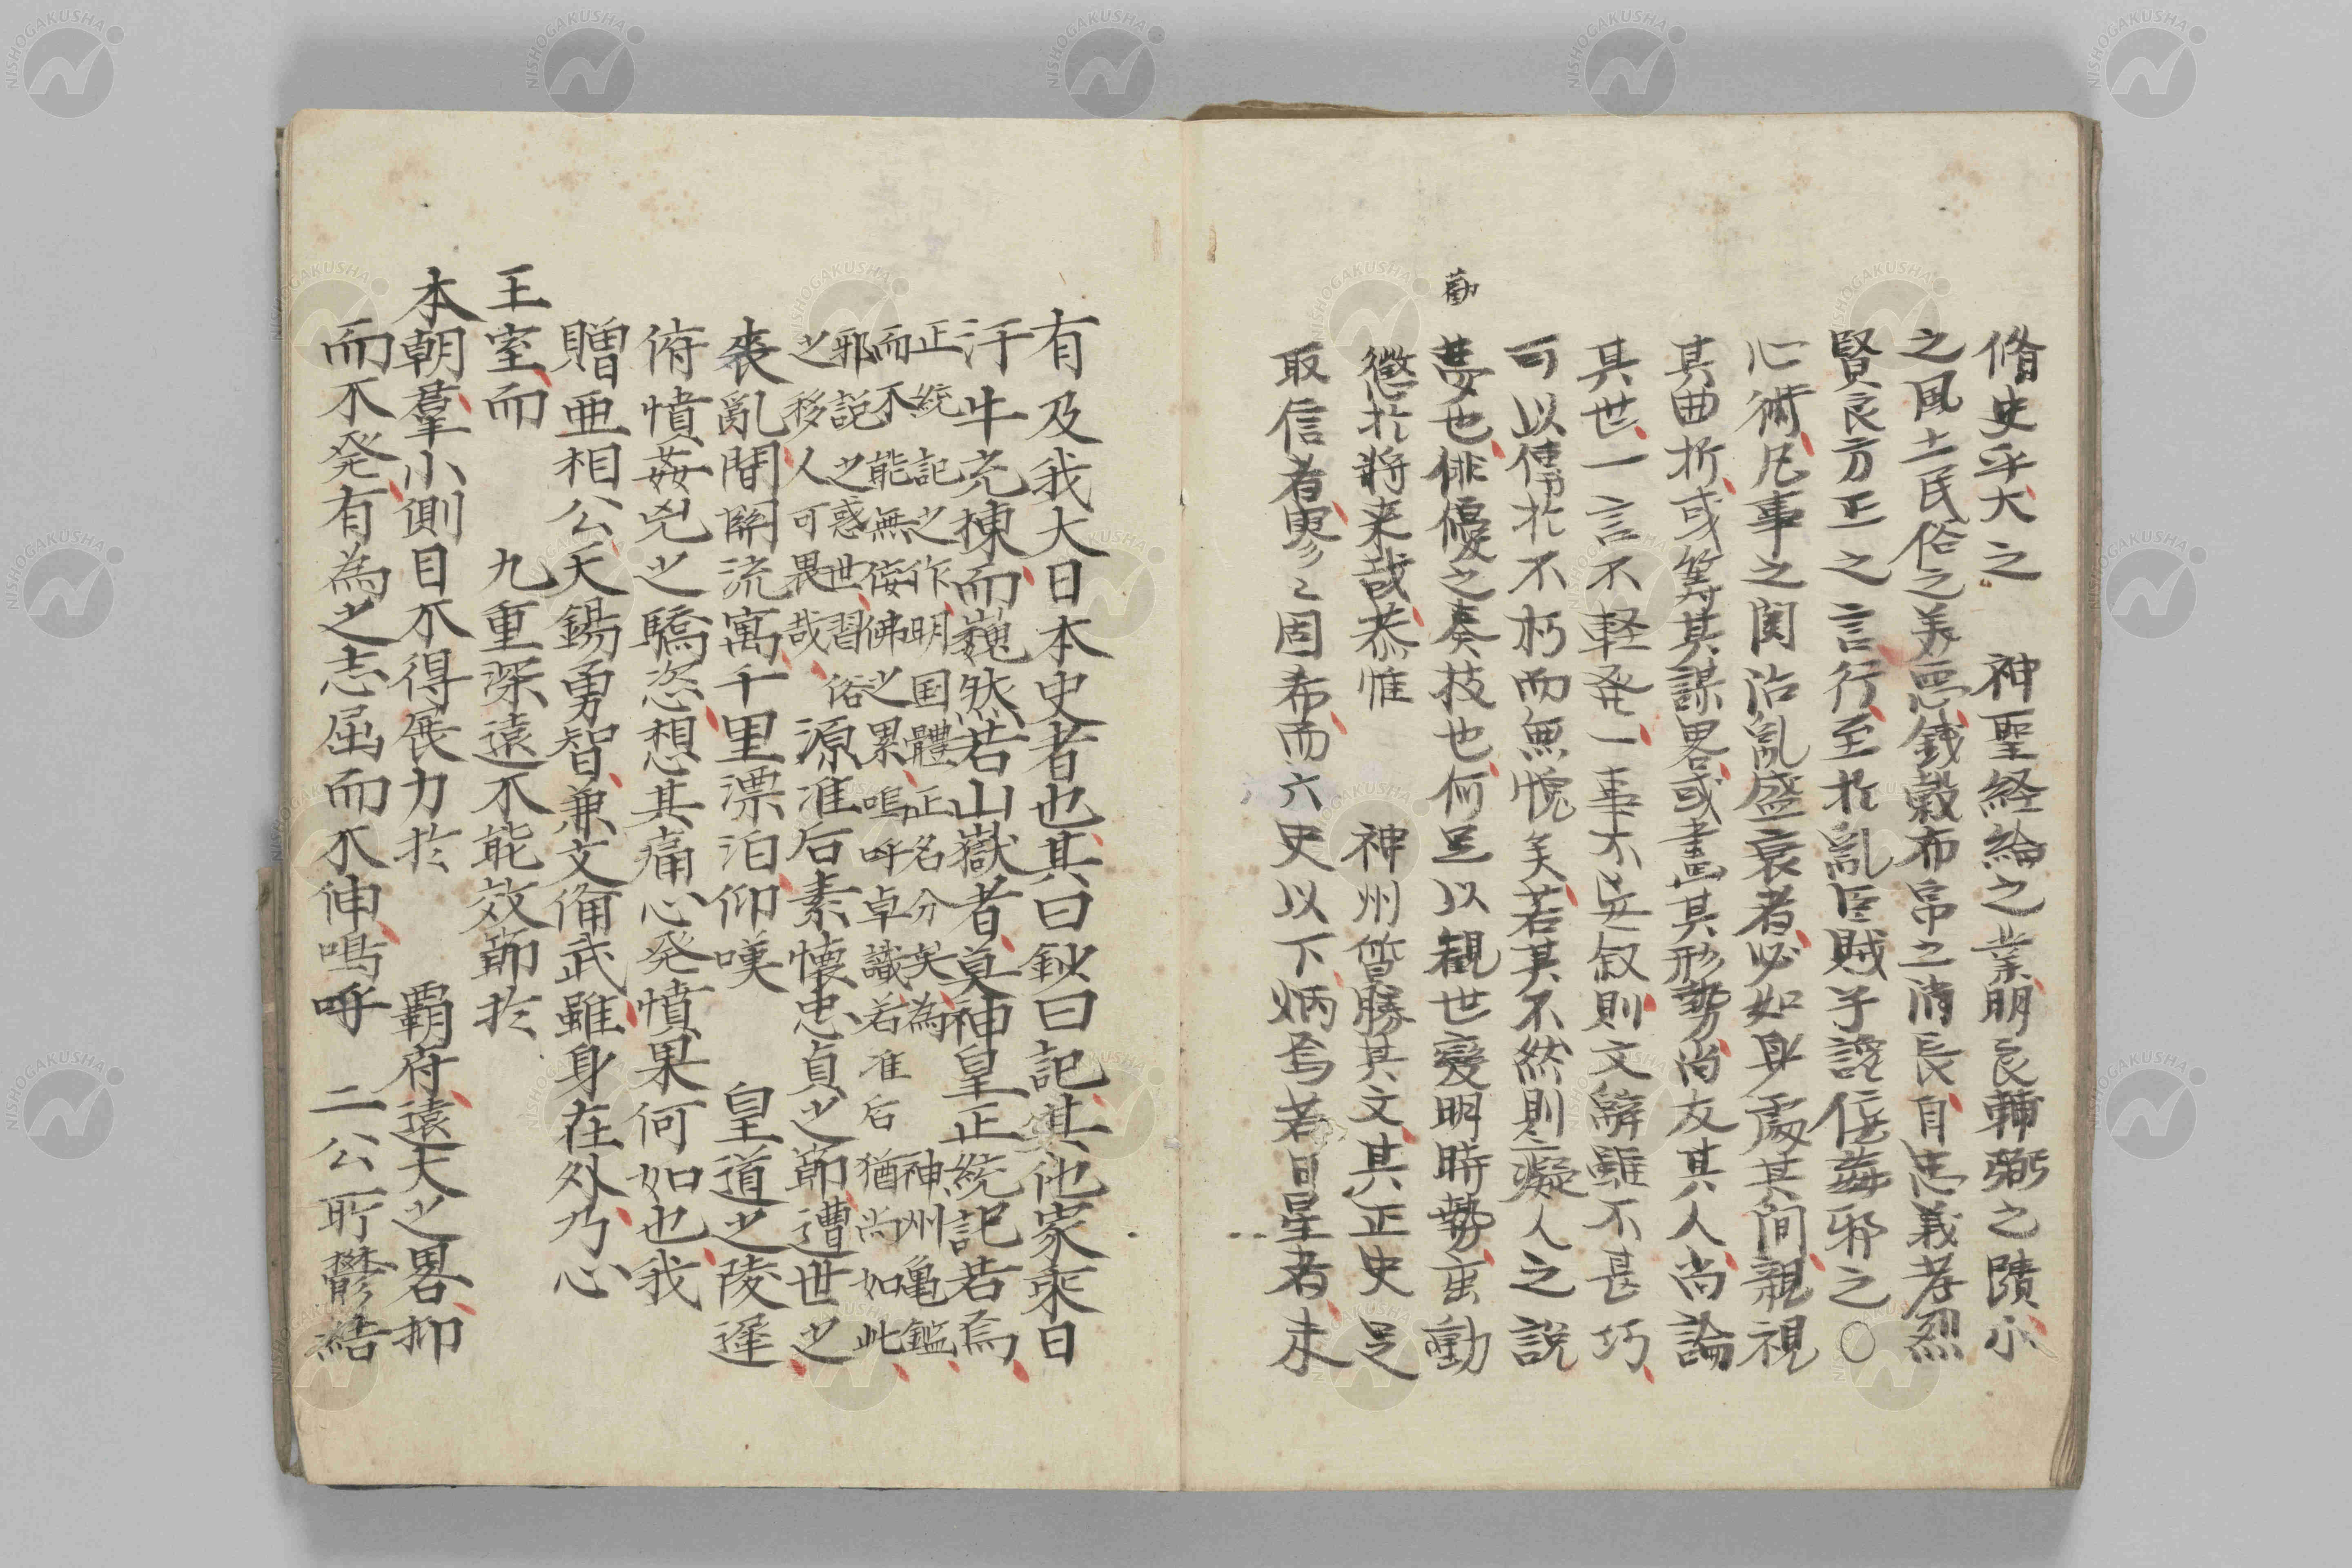 脩史乎大之　神聖経綸之業明良輔弼之蹟小
之風土民俗之美悪銭穀布帛之消長自忠義孝烈
賢良方正之言行至扵亂臣賊子讒佞姦邪之○
心術凡事之関治亂盛衰者必如身處其間親視
其曲折或籌其謀畧或畫其形勢尚友其人尚論
其世一言不軽発一事不妄叙則文辭雖不甚巧
可以傳扵不朽而無愧矣若其不然則癡人之説
夢也俳優之奏技也何足以観世變明時勢䖝勸
勸
懲扵將来哉恭惟　神州皆勝其文其正史足
取信者寥々固希而六史以下炳焉若日星者未
有及我大日本史者也其曰鈔曰記其他家乘日
汗牛充棟而巍然若山嶽者莫神皇正統記若焉
正統記之作明国體正名分矣為神州亀鑑
而不能無佞佛之累嗚呼卓識若准后猶尚如此
邪説之惑世習俗
之移人可畏哉
源准后素懐忠貞之節遭世之
衰亂間関流寓千里漂泊仰嘆　皇道之陵遅
俯憤姦兇之驕恣想其痛心発憤果何如也我
贈亜相公天錫勇智兼文備武雖身在外乃心
王室而　九重深遠不能效節扵
本朝羣小側目不得展力扵　覇府遠大之畧抑
而不発有為之志屈而不伸嗚呼　二公所鬱結
NISHOGAKUSHA